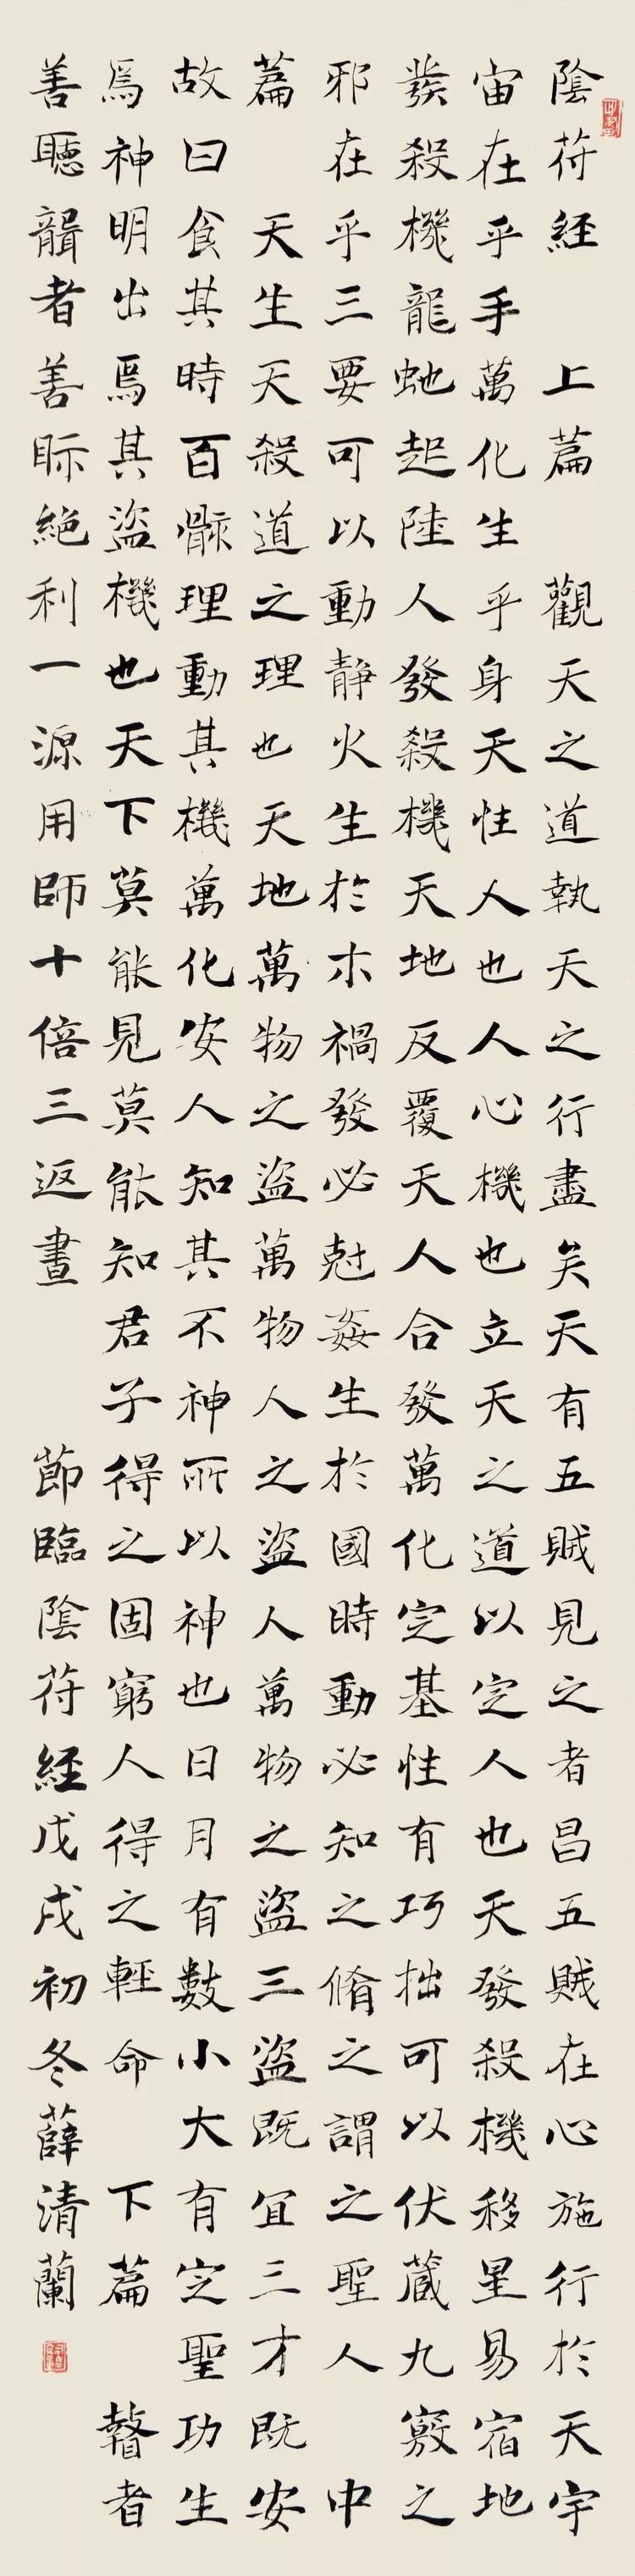 陰符經 上篇 觀天之道執天之行盡矣天有五賊見之者昌五賊在心施行於天宇
宙在乎手萬化生乎身天性人也人心機也立天之道以定人也天發殺機移星易宿地
發殺機龍虵起陸人發殺機天地反覆天人合發萬化定基性有巧拙可以伏藏九竅之
邪在乎三要可以動靜火生於木禍發必尅姦生於國時動必知之脩之謂之聖人 中
篇 天生天殺道之理也天地萬物之盜萬物人之盜人萬物之盜三盜既宜三才既安
故曰食其時百骸理動其機萬化安人知其不神所以神也日月有數小大有定聖功生
焉神明出焉其盜機也天下莫能見莫能知君子得之固窮人得之輕命 下篇 瞽者
善聽聾者善眎絕利一源用師十倍三返晝 節臨陰符經戊戌初冬薛清蘭